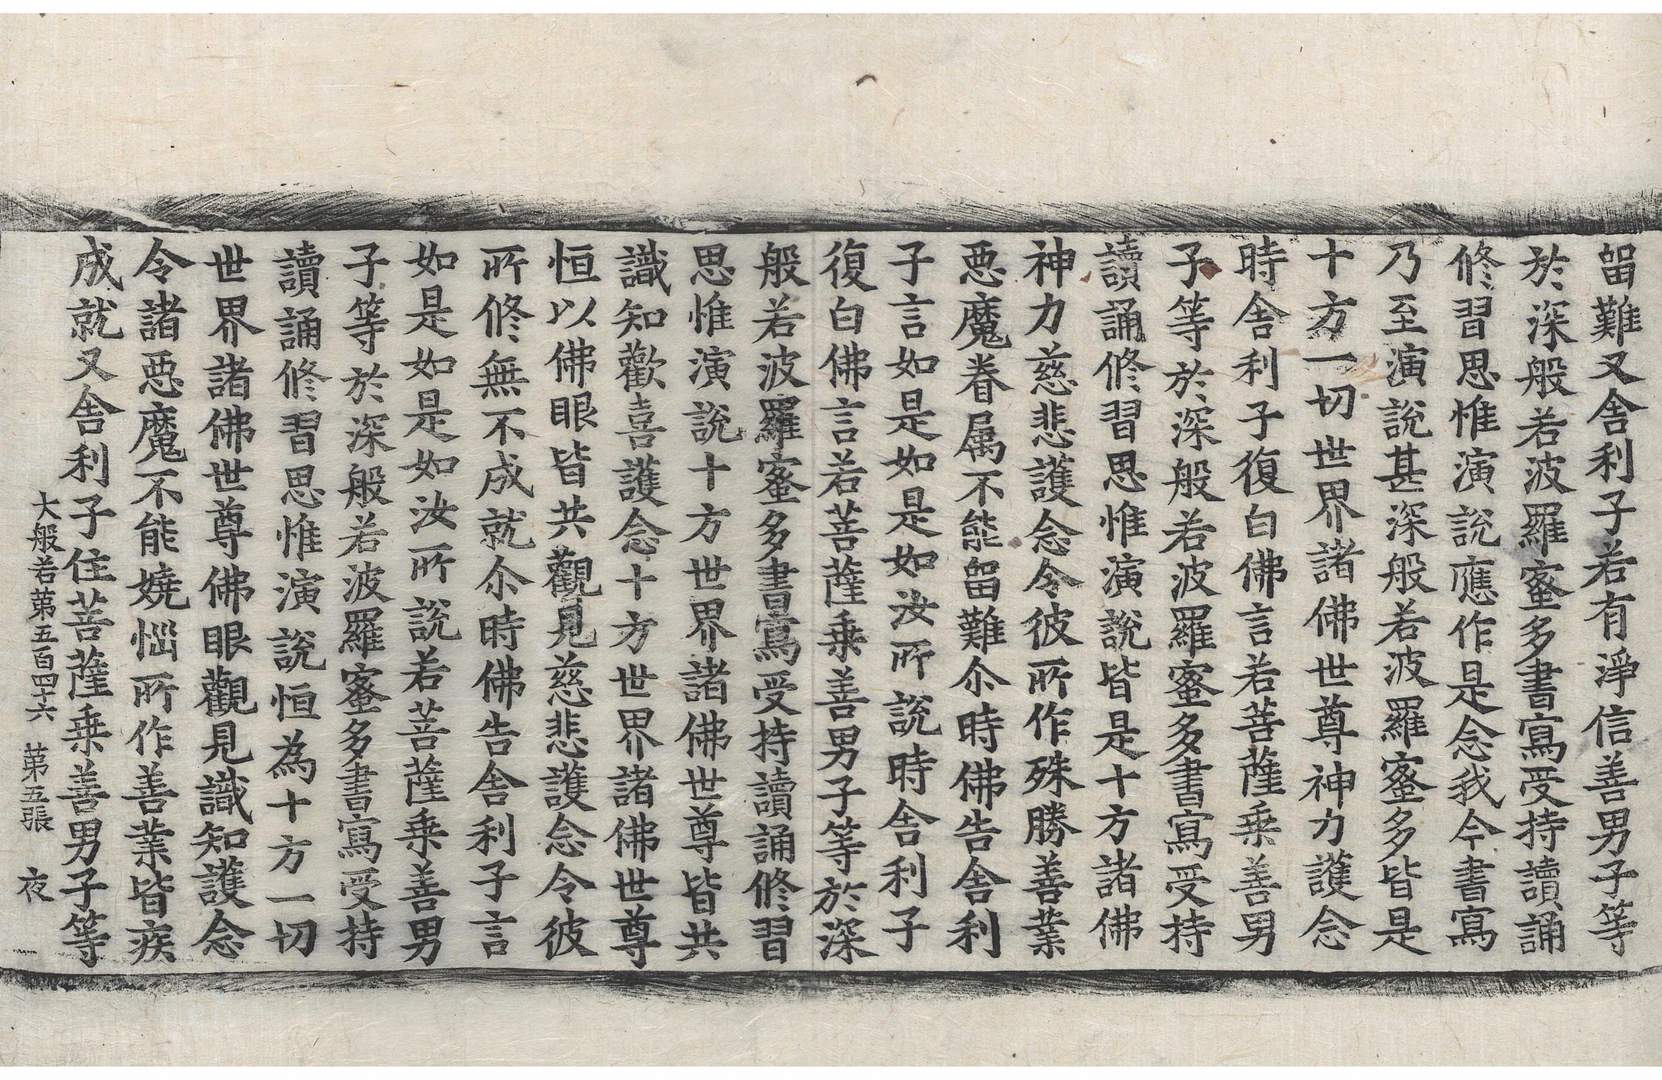 留難又舍利子若有淨信善男子等
於深般若波羅蜜多書寫受持讀誦
修習思惟演說應作是念我今書寫
乃至演說甚深般若波羅蜜多皆是
十方一切世界諸佛世尊神力護念
時舍利子復白佛言若菩薩乘善男
子等於深般若波羅蜜多書寫受持
讀誦修習思惟演說皆是十方諸佛
神力慈悲護念令彼所作殊勝善業
惡魔眷属不能留難尒時佛告舍利
子言如是如是如汝所說時舍利子
復白佛言若菩薩乘善男子等於深
般若波羅蜜多書寫受持讀誦修習
思惟演說十方世界諸佛世尊皆共
識知歡喜護念十方世界諸佛世尊
恒以佛眼皆共觀見慈悲護念令彼
所修無不成就尒時佛告舍利子言
如是如是如汝所說若菩薩乘善男
子等於深般若波羅蜜多書寫受持
讀誦修習思惟演說恒為十方一切
世界諸佛世尊佛眼觀見識知護念
令諸惡魔不能嬈惱所作善業皆疾
成就又舍利子住菩薩乘善男子等
大般若第五百四十六 第五張 夜